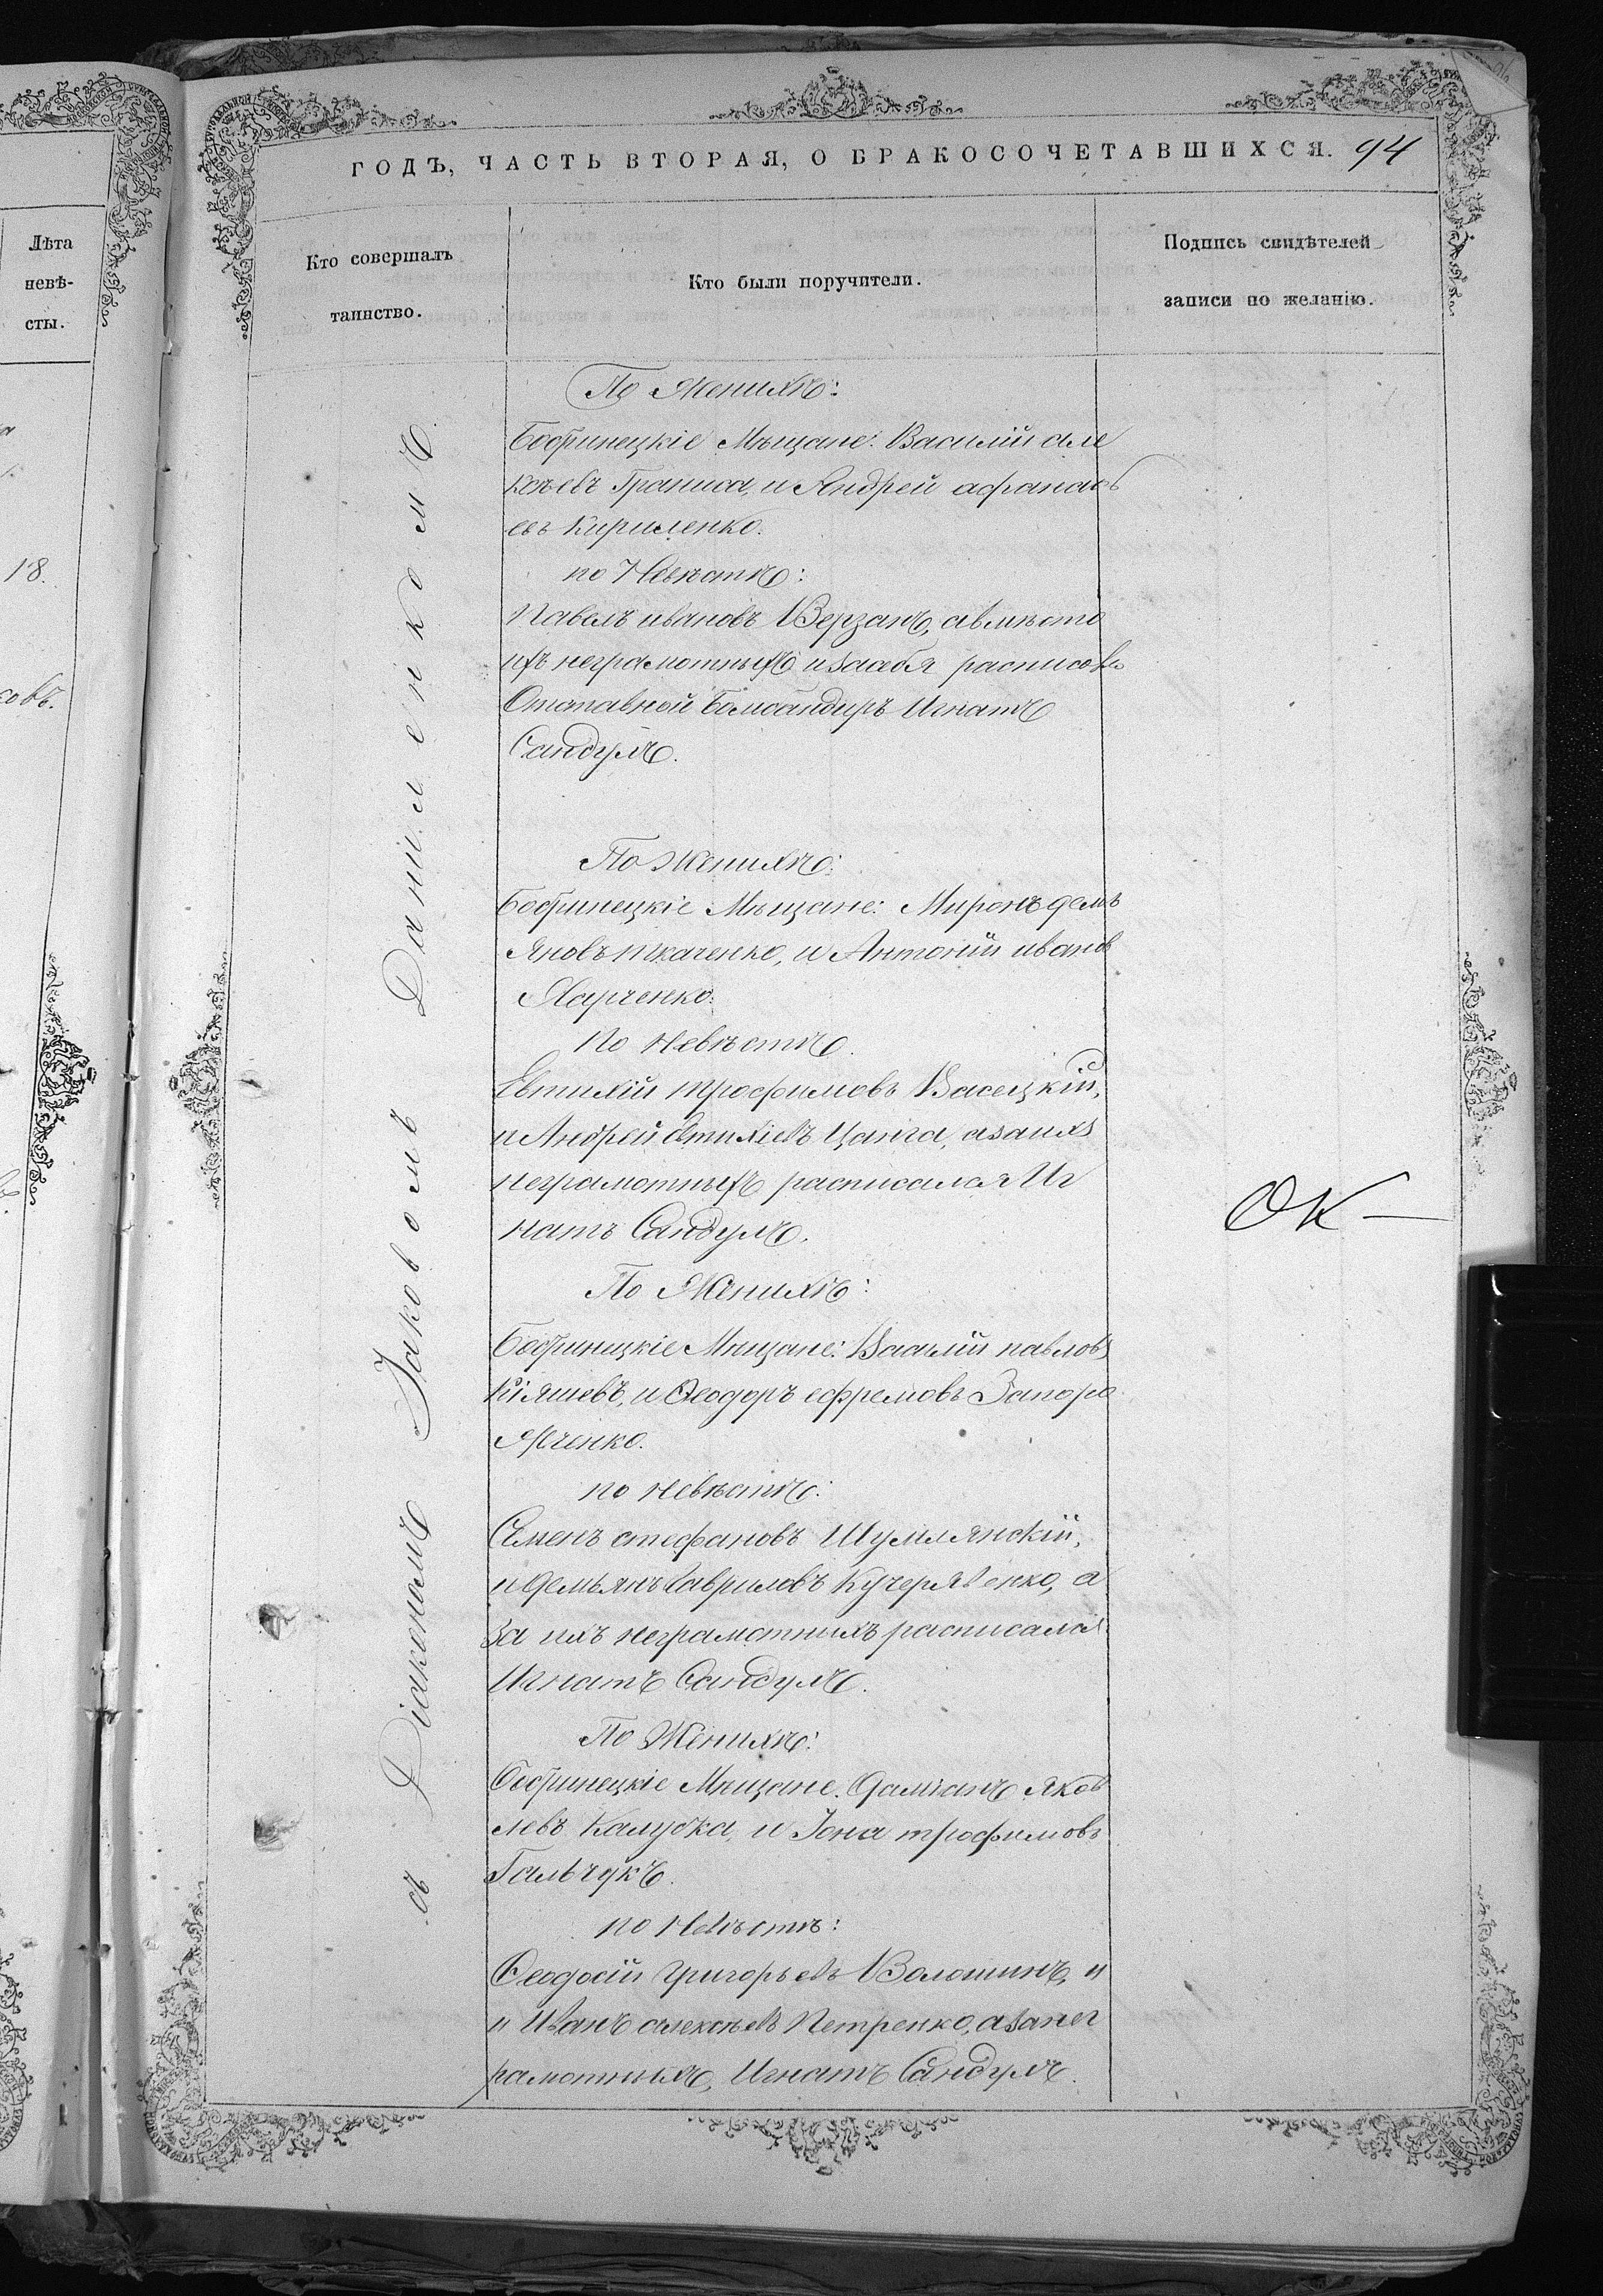 ГОДЪ, ЧАСТЬ ВТОРАЯ, О БРАКОСОЧЕТАВШИХСЯ. 94
Лѣта
невѣ-
сты.
18.
совъ.
Кто совершалъ
таинство.
Кто были поручители.
Подпись свидѣтелей
записи по желанію.
съ Діакономъ Іаковомъ Даниленкомъ
По Женихѣ:
Бобринецкіе Мѣщане: Василій але
ксѣевъ Граниса, и Андрей афанась
евъ Кириленко.
по Невѣстѣ:
Павелъ ивановъ Верзанъ, а вмѣсто
ихъ неграмотныхъ и за себя росписовъ
Отставной Бомбандиръ Игнатъ
Сандулъ.
По Женихѣ:
Бобринецкіе Мѣщане: Миронъ демъ
яновъ ткаченко, и Антоній иванов
Харченко.
По Невѣстѣ.
Евтихій трофимовъ Васецкій,
и Андрей евтихіевъ Цанга, а за ихъ
неграмотныхъ расписался Иг
натъ Сандулъ.
По Женихѣ:
Бобринецкіе Мѣщане: Василій павловъ
Кіяшевъ, и Ѳеодоръ ефремовъ Запоро
женко.
по Невѣстѣ:
Семенъ стефановъ Шумлянскій,
и Демьянъ Гавриловъ Кучерявенко, а
за ихъ неграмотныхъ расписался
Игнатъ Сандулъ.
По Женихѣ:
Бобринецкіе Мѣщане. Даміанъ Яков
левъ Калубка, и Іона трофимовъ
Гальчукъ.
по Невѣстѣ:
Ѳеодосій Григорьевъ Волошинъ, и
и Иванъ алексѣевъ Петренко, а за нег
рамотныхъ, Игнатъ Сандулъ.
ОК —